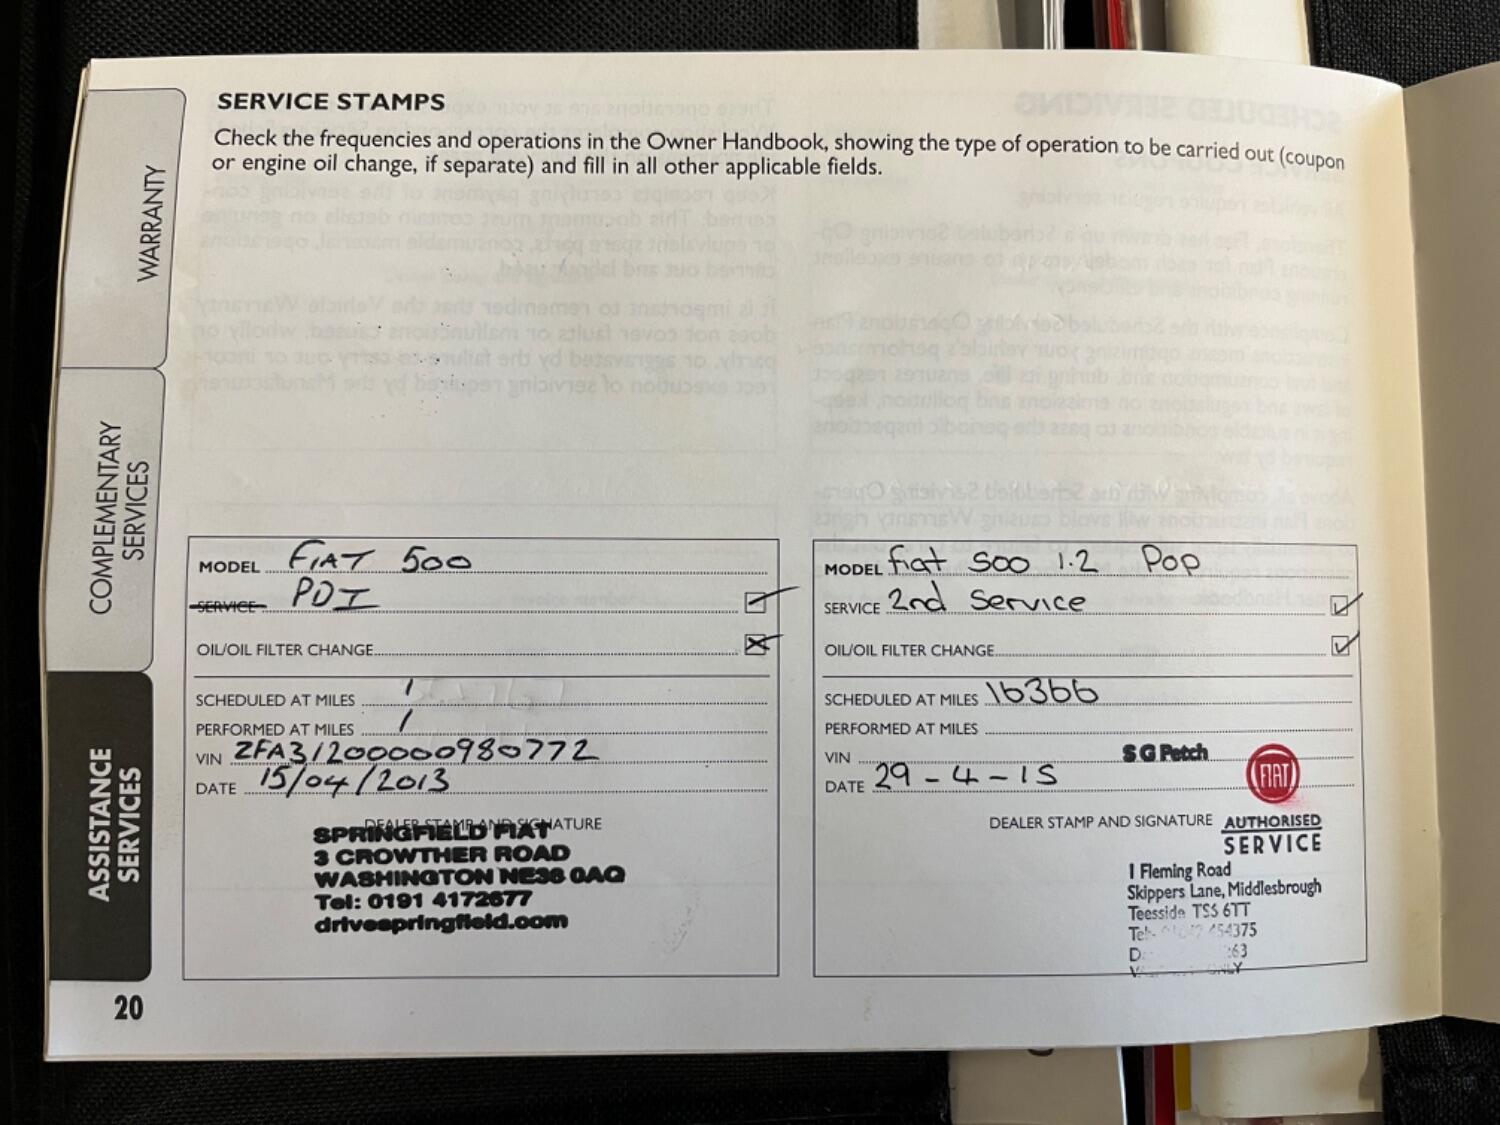 SERVICE STAMPS
Check the frequencies and operations in the Owner Handbook, showing the type of operation to be carried out (coupon
or engine oil change, if separate) and fill in all other applicable fields.
WARRANTY
COMPLEMENTARY
SERVICES
ASSISTANCE
SERVICES
MODEL FIAT 500
SERVICE PDI
OIL/OIL FILTER CHANGE
SCHEDULED AT MILES 1
PERFORMED AT MILES 1
VIN ZFA31200000980772
DATE 15/04/2013
DEALER STAMP AND SIGNATURE
SPRINGFIELD FIAT
3 CROWTHER ROAD
WASHINGTON NE38 0AQ
Tel: 0191 4172677
drivespringfield.com
MODEL Fiat 500 1.2 Pop
SERVICE 2nd Service
OIL/OIL FILTER CHANGE
SCHEDULED AT MILES 16366
PERFORMED AT MILES
VIN
S G Petch
DATE 29-4-15
FIAT
DEALER STAMP AND SIGNATURE
AUTHORISED
SERVICE
1 Fleming Road
Skippers Lane, Middlesbrough
Teesside TS6 6TT
454375
ONLY
20